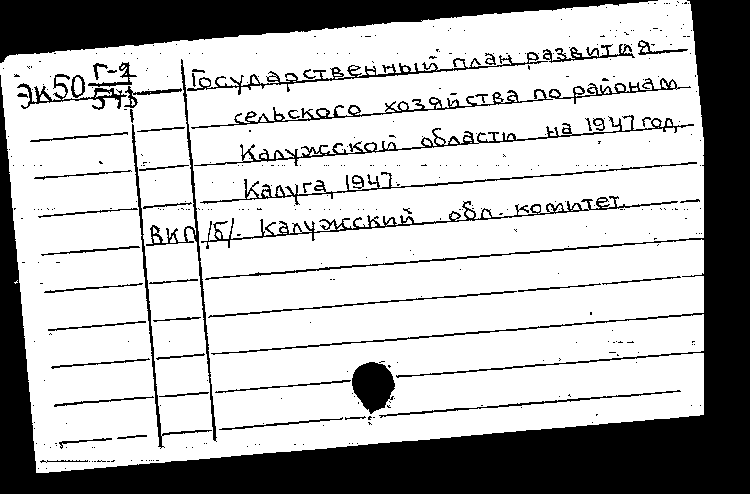 Эк50 Г-9/543 Государственный план развития
сельского хозяйства по районам
Калужской области на 1947 год.
Калуга, 1947.
ВКП /б/. Калужский обл. комитет.